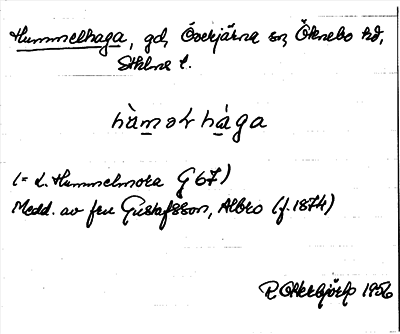 Hummelhaga, gd, Överjärna sn, Öknebo hd,
Sthlms l.
hàməl hága
(= L. Hummelmora G 67)
Medd. av fru Gustafsson, Albro (f. 1874)
R Otterbjörk 1956